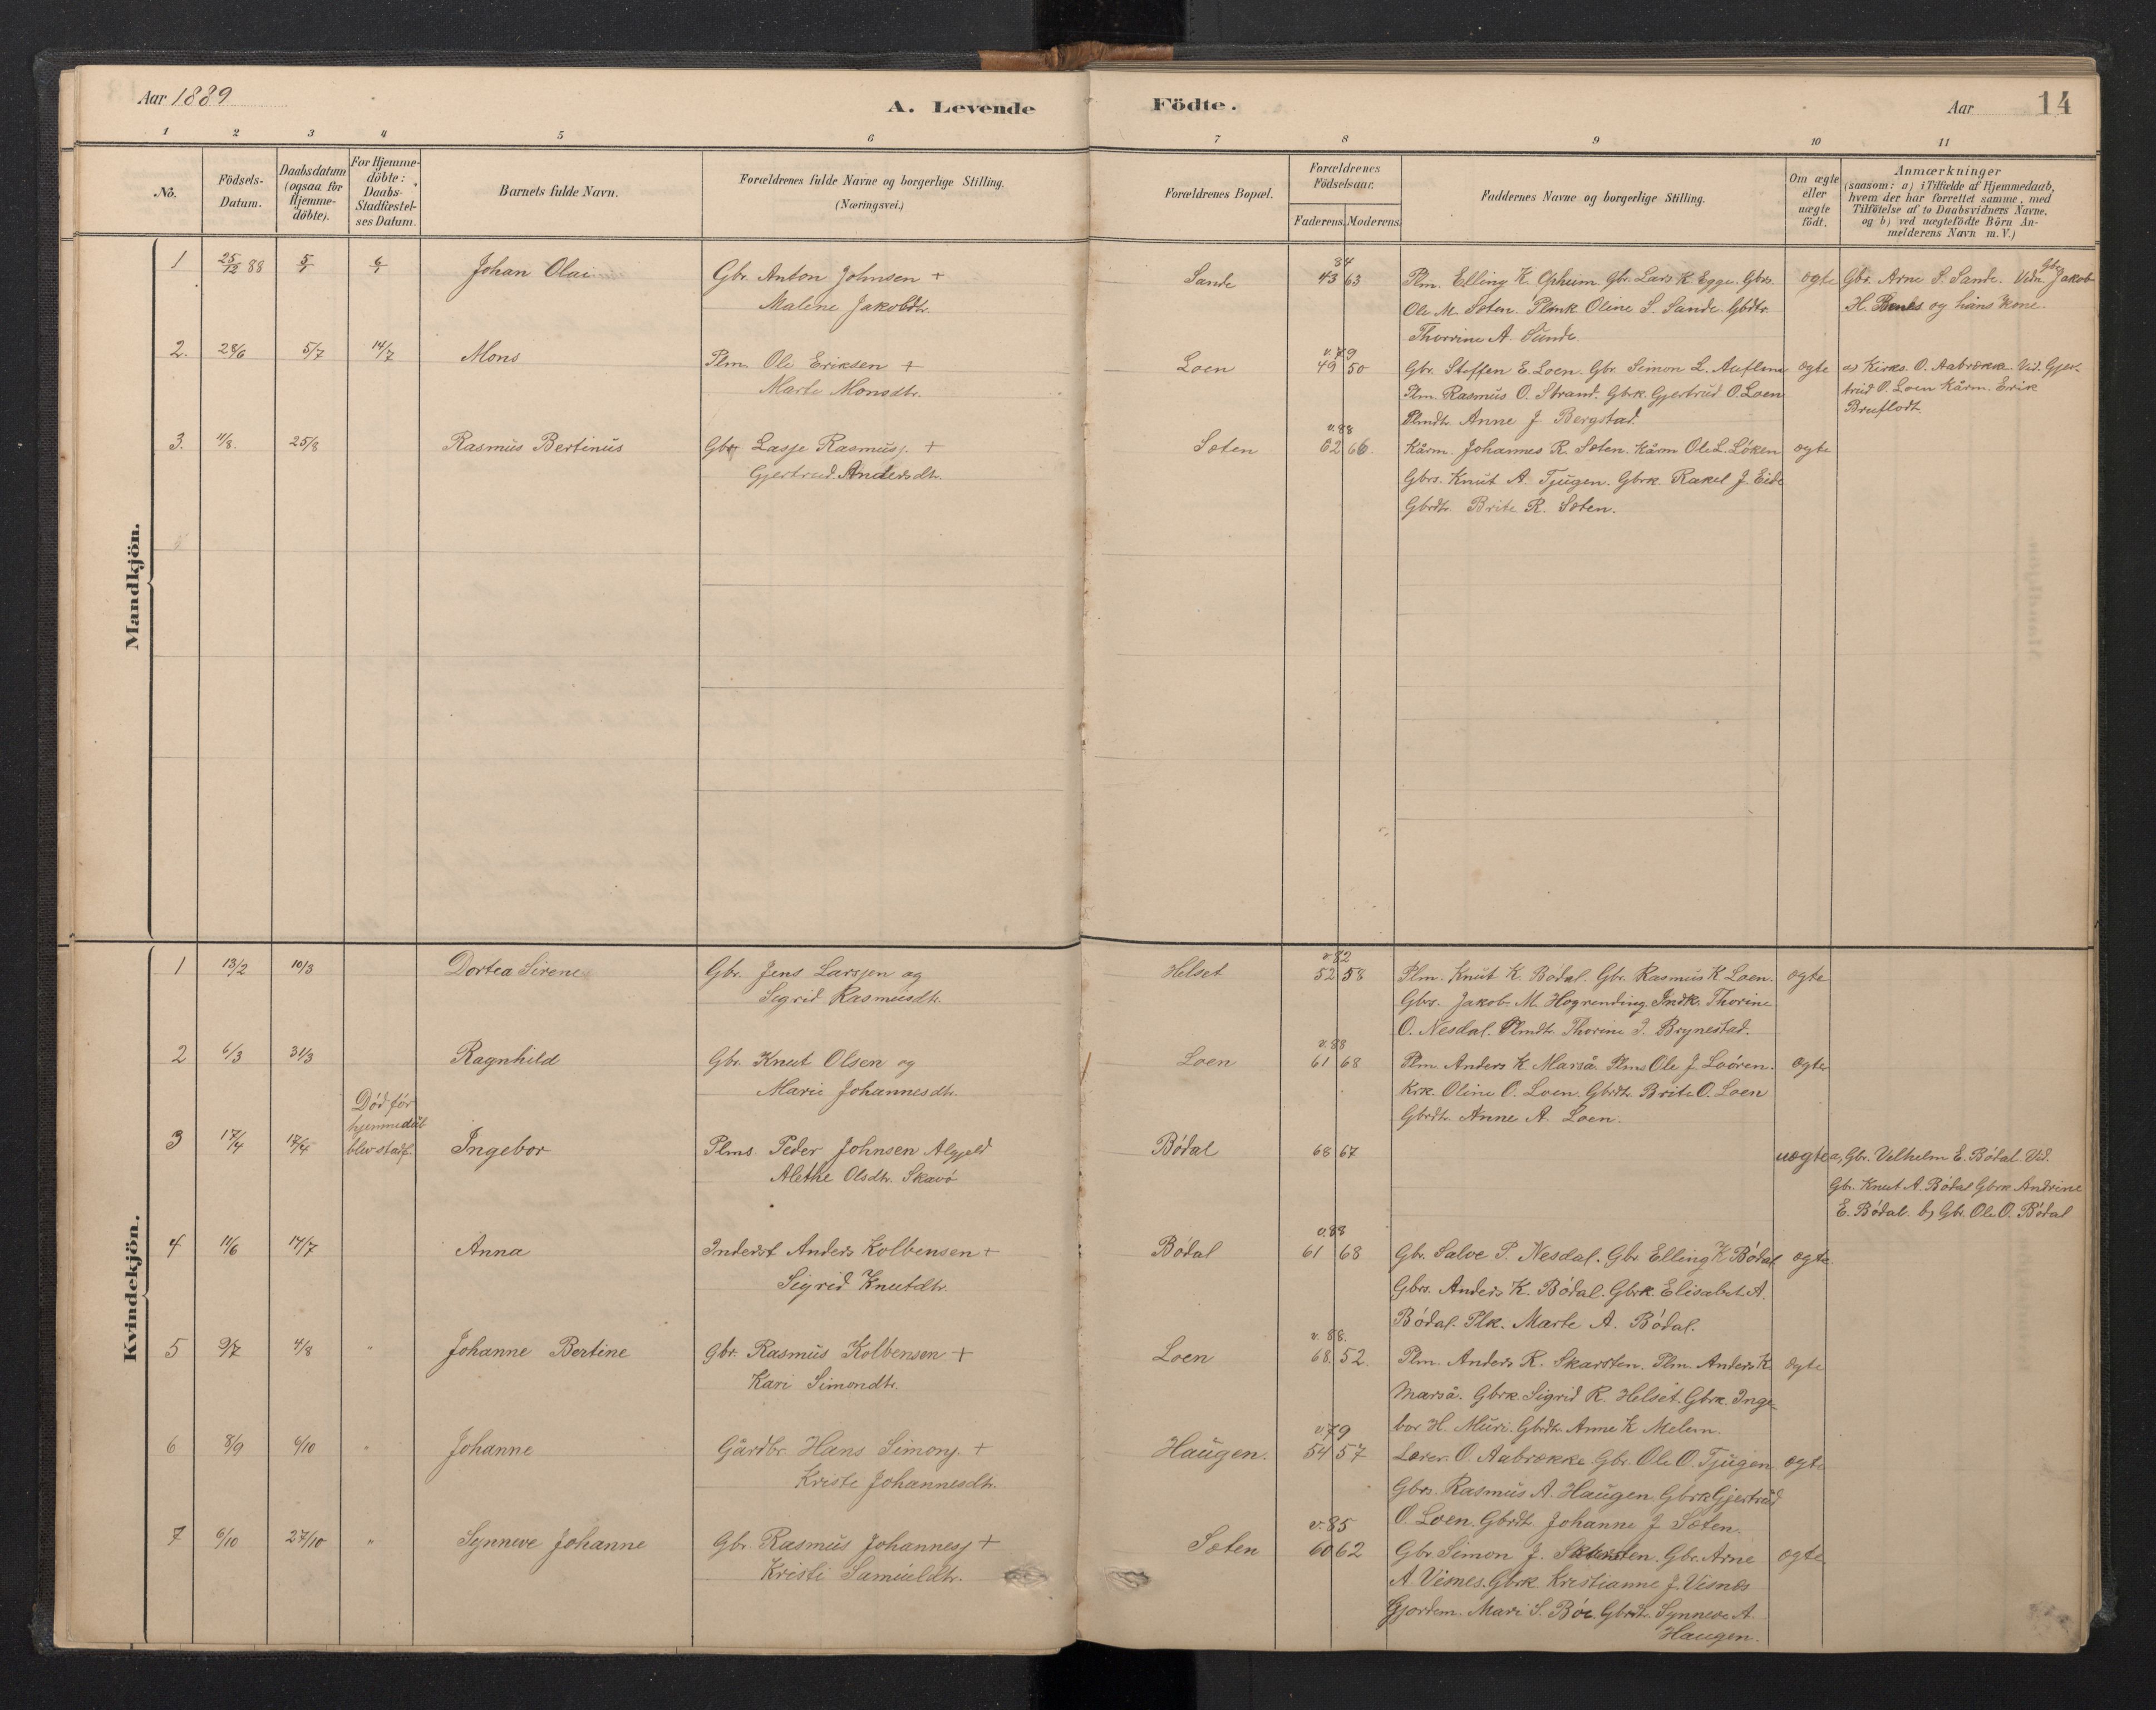 Aar 1889
A. Levende Födte.
Aar 14
1 2 3 4 5 6 7 8 9 10 11
No.
Födsels-Datum.
Daabsdatum (ogsaa for Hjemme-döbte).
For Hjemme-döbte: Daabs-Stadfæstel-ses Datum.
Barnets fulde Navn.
Forældrenes fulde Navne og borgerlige Stilling.
(Næringsvei.)
Forældrenes Bopæl.
Forældrenes Födselsaar.
Faderens. Moderens.
Faddernes Navne og borgerlige Stilling.
Om ægte eller uægte födt.
Anmærkninger
(saasom: a) i Tilfælde af Hjemmedaab,
hvem der har forrettet samme, med
Tilföielse af to Daabsvidners Navne,
og b) ved uægtefödte Börn An-
melderens Navn m.V.)
Mandkjön.
84
1 25/12 88 5/1 6/1 Johan Olai Gbr. Anton Johnsen + Sande 43 63 Plm. Elling K. Ophum Gbr. Lars K. Egge. Gbrs. ægte Gbr. Arne S. Sande. Vidn. Gbr. Jakob
Malene Jakobdtr. Ole M. Sæten. Plmk Oline S. Sande. Gbdtr. H. Bones og hans kone.
Thorrine A. Sande
v. 79
2. 28/6 5/7 14/7 Mons Plm. Ole Eriksen + Loen 49 50 Gbr. Steffen E. Loen. Gbr. Simon L. Auflem ægte a) Kirks. O. Aabrekk. Vid. Gjer-
Marte Monsdtr. Plm. Rasmus O. Strand. Gbrk. Gjertrud O. Loen trud O. Loen Kårm. Erik
Plmdtr. Anne J. Bergstad. Bruflodt.
v. 88
3. 11/8. 25/8 Rasmus Bertinus Gbr Lasse Rasmuss. + Sæten 62 66. Kårm. Johannes R. Sæten. Kårm Ole L. Löken ægte
Gjertrud Andersdtr. Gbrs. Knut A. Tjugen. Gbrk. Rakel J. Eide
Gbrdtr. Brite R. Sæten.
Kvindekjön.
v. 82
1 13/2 10/3 Dortea Sirene Gbr. Jens Larssen og Helset 52 58 Plm. Knut K. Bødal. Gbr. Rasmus K Loen. ægte
Sigrid Rasmusdtr. Gbrs. Jakob M. Hogrending Indk. Thorine
O. Nesdal. Plmdtr. Thorine I. Brynestad.
v. 88
2 6/3 31/3 Ragnhild Gbr. Knut Olsen og Loen 61 68 Plm. Anders K. Marså. Plms Ole J. Loøren. ægte
Marie Johannesdtr. Krk. Oline O. Loen. Gbrdtr. Brite O. Loen
Gbrdtr. Anne A. Loen.
Død før
hjemmedåb
3 17/4 17/4 blev stadf. Ingebor Plms. Peder Johnsen Algjeld Bødal 68 67 uægte a, Gbr. Vilhelm E. Bødal. Vid.
Alethe Olsdtr. Skavø Gbr. Knut A. Bødal Gbrk Andrine
E. Bødal. b, Gbr. Ole O. Bødal
v. 88
4 11/6 14/7 Anna Inderst Anders Kolbensen + Bødal 61 68 Gbr. Salve P. Nesdal. Gbr. Elling K Bødal ægte
Sigrid Knutdtr. Gbrs. Anders K. Bødal. Gbrk. Elisabet A.
Bødal. Plk. Marte A. Bødal.
v. 88.
5 9/7 4/8 " Johanne Bertine Gbr. Rasmus Kolbensen + Loen 68. 52. Plm. Anders R. Skarsten. Plm. Anders K. ægte
Kari Simondtr. Marså. Gbrk. Sigrid R. Helset. Gbrk. Inge-
bor H. Muri. Gbrdtr. Anne K Melem.
v. 79
6 8/9 6/10 " Johanne Gårdbr. Hans Simons. + Haugen. 54 57 Lærer. O. Aabrekke Gbr. Ole O. Tjugen ægte
Kriste Johannesdtr. Gbrs. Rasmus A. Haugen. Gbrk Gjertrud
O. Loen. Gbrdtr. Johanne J. Sæten.
v. 85
7 6/10 27/10 " Synneve Johanne Gbr. Rasmus Johanness + Sæten 60 62 Gbr. Simon J. Skarsten. Gbr. Arne ægte
Kristi Samueldtr. A Visnes. Gbrk. Kristianne J. Visnes
Gjordem. Mari S. Bøe. Gbrdtr. Synneve A.
Haugen.